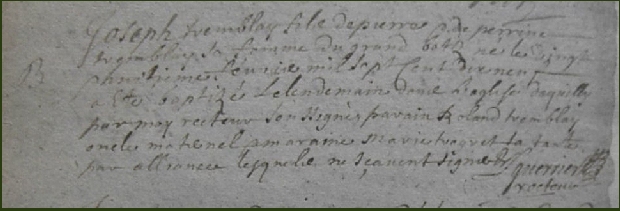 B
Joseph tremblay fils de pierre & de perrine
tremblay sa femme du grand ne le vingt
huitieme fevrier mil sept Cent dix neuf
a Ete baptizé le lendemain dans l'eglise
par moy recteur Soussigné paroain Roland tremblay
oncle maternel & maraine marie sa tante
par alliance lesquels ne sçavent signer
recteur